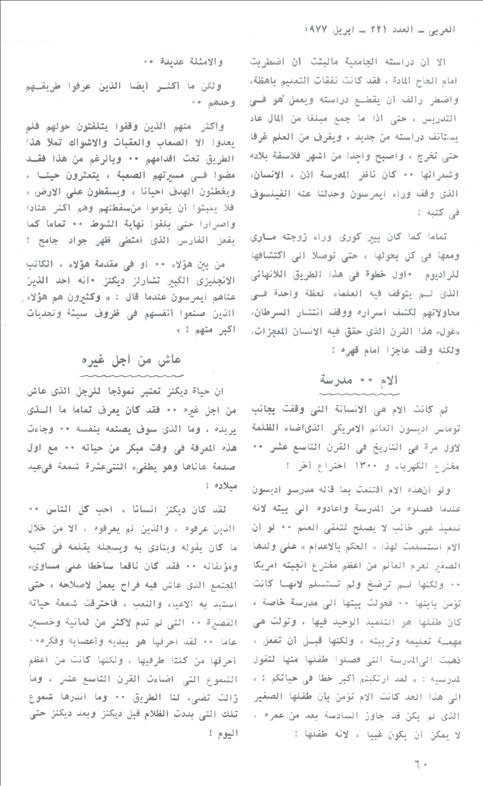 العربى ــ العدد ٢٢١ ــ ابريل ١٩٧٧
الا أن دراسته الجامعية مالبثت أن اضطربت
امام الحاح المادة ، فقد كانت نفقات التعليم باهظة،
واضطر رالف أن يقطع دراسته ويعمل هو فى
التدريس ، حتى اذا ما جمع مبلغا من المال عاد
يستأنف دراسته من جديد ، ويغرف من العلم غرفا
حتى تخرج ، واصبح واحدا من أشهر فلاسفة بلاده
وشعرائها ٠٠ كان ناظر المدرسة اذن ، الانسان،
الذى وقف وراء ايمرسون وحدثنا عنه الفيلسوف
فى كتبه :
تماما كما كان بيير كورى وراء زوجته مارى
ومعها فى كل بحوثها ، حتى توصلا الى اكتشافها
للراديوم ٠ اول خطوة فى هذا الطريق اللانهائى
الذى لم يتوقف فيه العلماء لحظة واحدة فى
محاولاتهم لكشف اسراره ووقف انتشار السرطان،
«غول» هذا القرن الذى حقق فيه الانسان المعجزات،
ولكنه وقف عاجزا امام قهره :
الام ٠٠ مدرسة
ثم كانت الام هى الانسانة التى وقفت بجانب
توماس اديسون العالم الامريكى الذى اضاء الظلمة
لاول مرة فى التاريخ فى القرن التاسع عشر ٠٠
مخترع الكهرباء و ١٣٠٠ اختراع آخر !
ولو ان هذه الام اقتنعت بما قاله مدرسو اديسون
عندما فصلوه من المدرسة واعادوه الى بيته لانه
تلميذ غبى خائب لا يصلح لتلقى العلم ٠٠ لو أن
الام استسلمت لهذا « الحكم بالاعدام » على ولدها
الصغير لحرم العالم من اعظم مخترع انجبته امريكا
٠٠ ولكنها لم ترضخ ولم تستسلم لانها كانت
تؤمن بابنها ٠٠ فحولت بيتها الى مدرسة خاصة ،
كان طفلها هو التلميذ الوحيد فيها ، وتولت هى
مهمة تعليمه وتربيته ، ولكنها قبل أن تفعل ،
ذهبت الى المدرسة التى فصلوا طفلها منها لتقول
لمدرسيه : « لقد ارتكبتم أكبر خطأ فى حياتكم ! »
الى هذا الحد كانت الام تؤمن بأن طفلها الصغير
الذى لم يكن قد جاوز السادسة بعد من عمره ،
لا يمكن أن يكون غبيا ، لانه طفلها :
والامثلة عديدة ٠٠
ولكن ما أكثر أيضا الذين عرفوا طريقهم
وحدهم ٠٠
واكثر منهم الذين وقفوا يتلفتون حولهم فلم
يجدوا الا الصعاب والعقبات والاشواك تملأ هذا
الطريق تحت اقدامهم ٠٠ وبالرغم من هذا فقد
مضوا فى مسيرتهم الصعبة ، يتعثرون حينا ،
ويخطئون الهدف احيانا ، ويسقطون على الارض ،
فلا يلبثوا أن يقوموا من سقطتهم وهم اكثر عنادا
واصرارا حتى بلغوا نهاية الشوط ٠٠ تماما كما
يفعل الفارس الذى امتطى ظهر جواد جامح !
من بين هؤلاء ٠٠ او فى مقدمة هؤلاء ، الكاتب
الانجليزى الكبير تشارلز ديكنز ٠ انه احد الذين
عناهم ايمرسون عندما قال : « وكثيرون هم هؤلاء
الذين صنعوا انفسهم فى ظروف سيئة وتحديات
اكبر منهم ! »
عاش من اجل غيره
ان حياة ديكنز تعتبر نموذجا للرجل الذى عاش
من اجل غيره ٠٠ فقد كان يعرف تماما ما الذى
يريده ، وما الذى سوف يصنعه بنفسه ٠٠ وجاءت
هذه المعرفة فى وقت مبكر من حياته ٠٠ مع اول
صدمة عاناها وهو يطفىء اثنتى عشرة شمعة فى عيد
ميلاده :
لقد كان ديكنز انسانا ، احب كل الناس ٠٠
الذين عرفوه ، والذين لم يعرفوه ، الا من خلال
ما كان يقوله وينادى به ويسجله بقلمه فى كتبه
ومؤلفاته ٠٠ فقد كان ناقما ساخطا على مساوىء
المجتمع الذى عاش فيه فراح يعمل لاصلاحه ، حتى
استبد به الاعياء والتعب ، فاحترقت شمعة حياته
القصيرة ٠٠ التى لم تدم لاكثر من ثمانية وخمسين
عاما ٠٠ لقد احرقها هو بيديه وأعصابه وفكره٠٠
أحرقها من كلتا طرفيها ، ولكنها كانت من أعظم
الشموع التى اضاءت القرن التاسع عشر ، وما
زالت تضىء لنا الطريق ٠٠ وما اندرها شموع
تلك التى بددت الظلام قبل ديكنز وبعد ديكنز حتى
اليوم !
٦٠